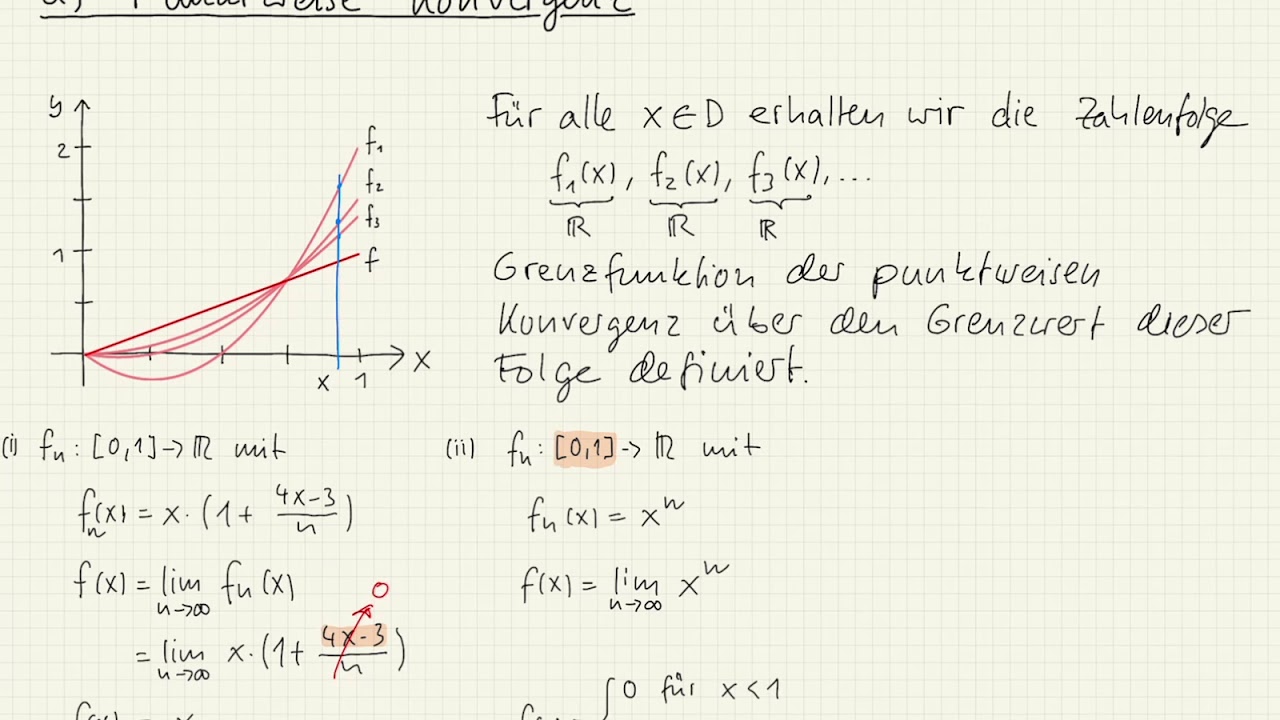 Konvergenz
y
2
1
f₁
f₂
f₃
f
x
1
x
Für alle x ∈ D erhalten wir die Zahlenfolge
f₁(x), f₂(x), f₃(x), ...
ℝ ℝ ℝ
Grenzfunktion der punktweisen
Konvergenz über den Grenzwert dieser
Folge definiert.
(i) fₙ : [0,1] → ℝ mit
fₙ(x) = x · (1 + (4x-3)/n)
f(x) = lim n→∞ fₙ(x)
0
= lim n→∞ x · (1 + (4x-3)/n)
(ii) fₙ : [0,1] → ℝ mit
fₙ(x) = xⁿ
f(x) = lim n→∞ xⁿ
0 für x < 1